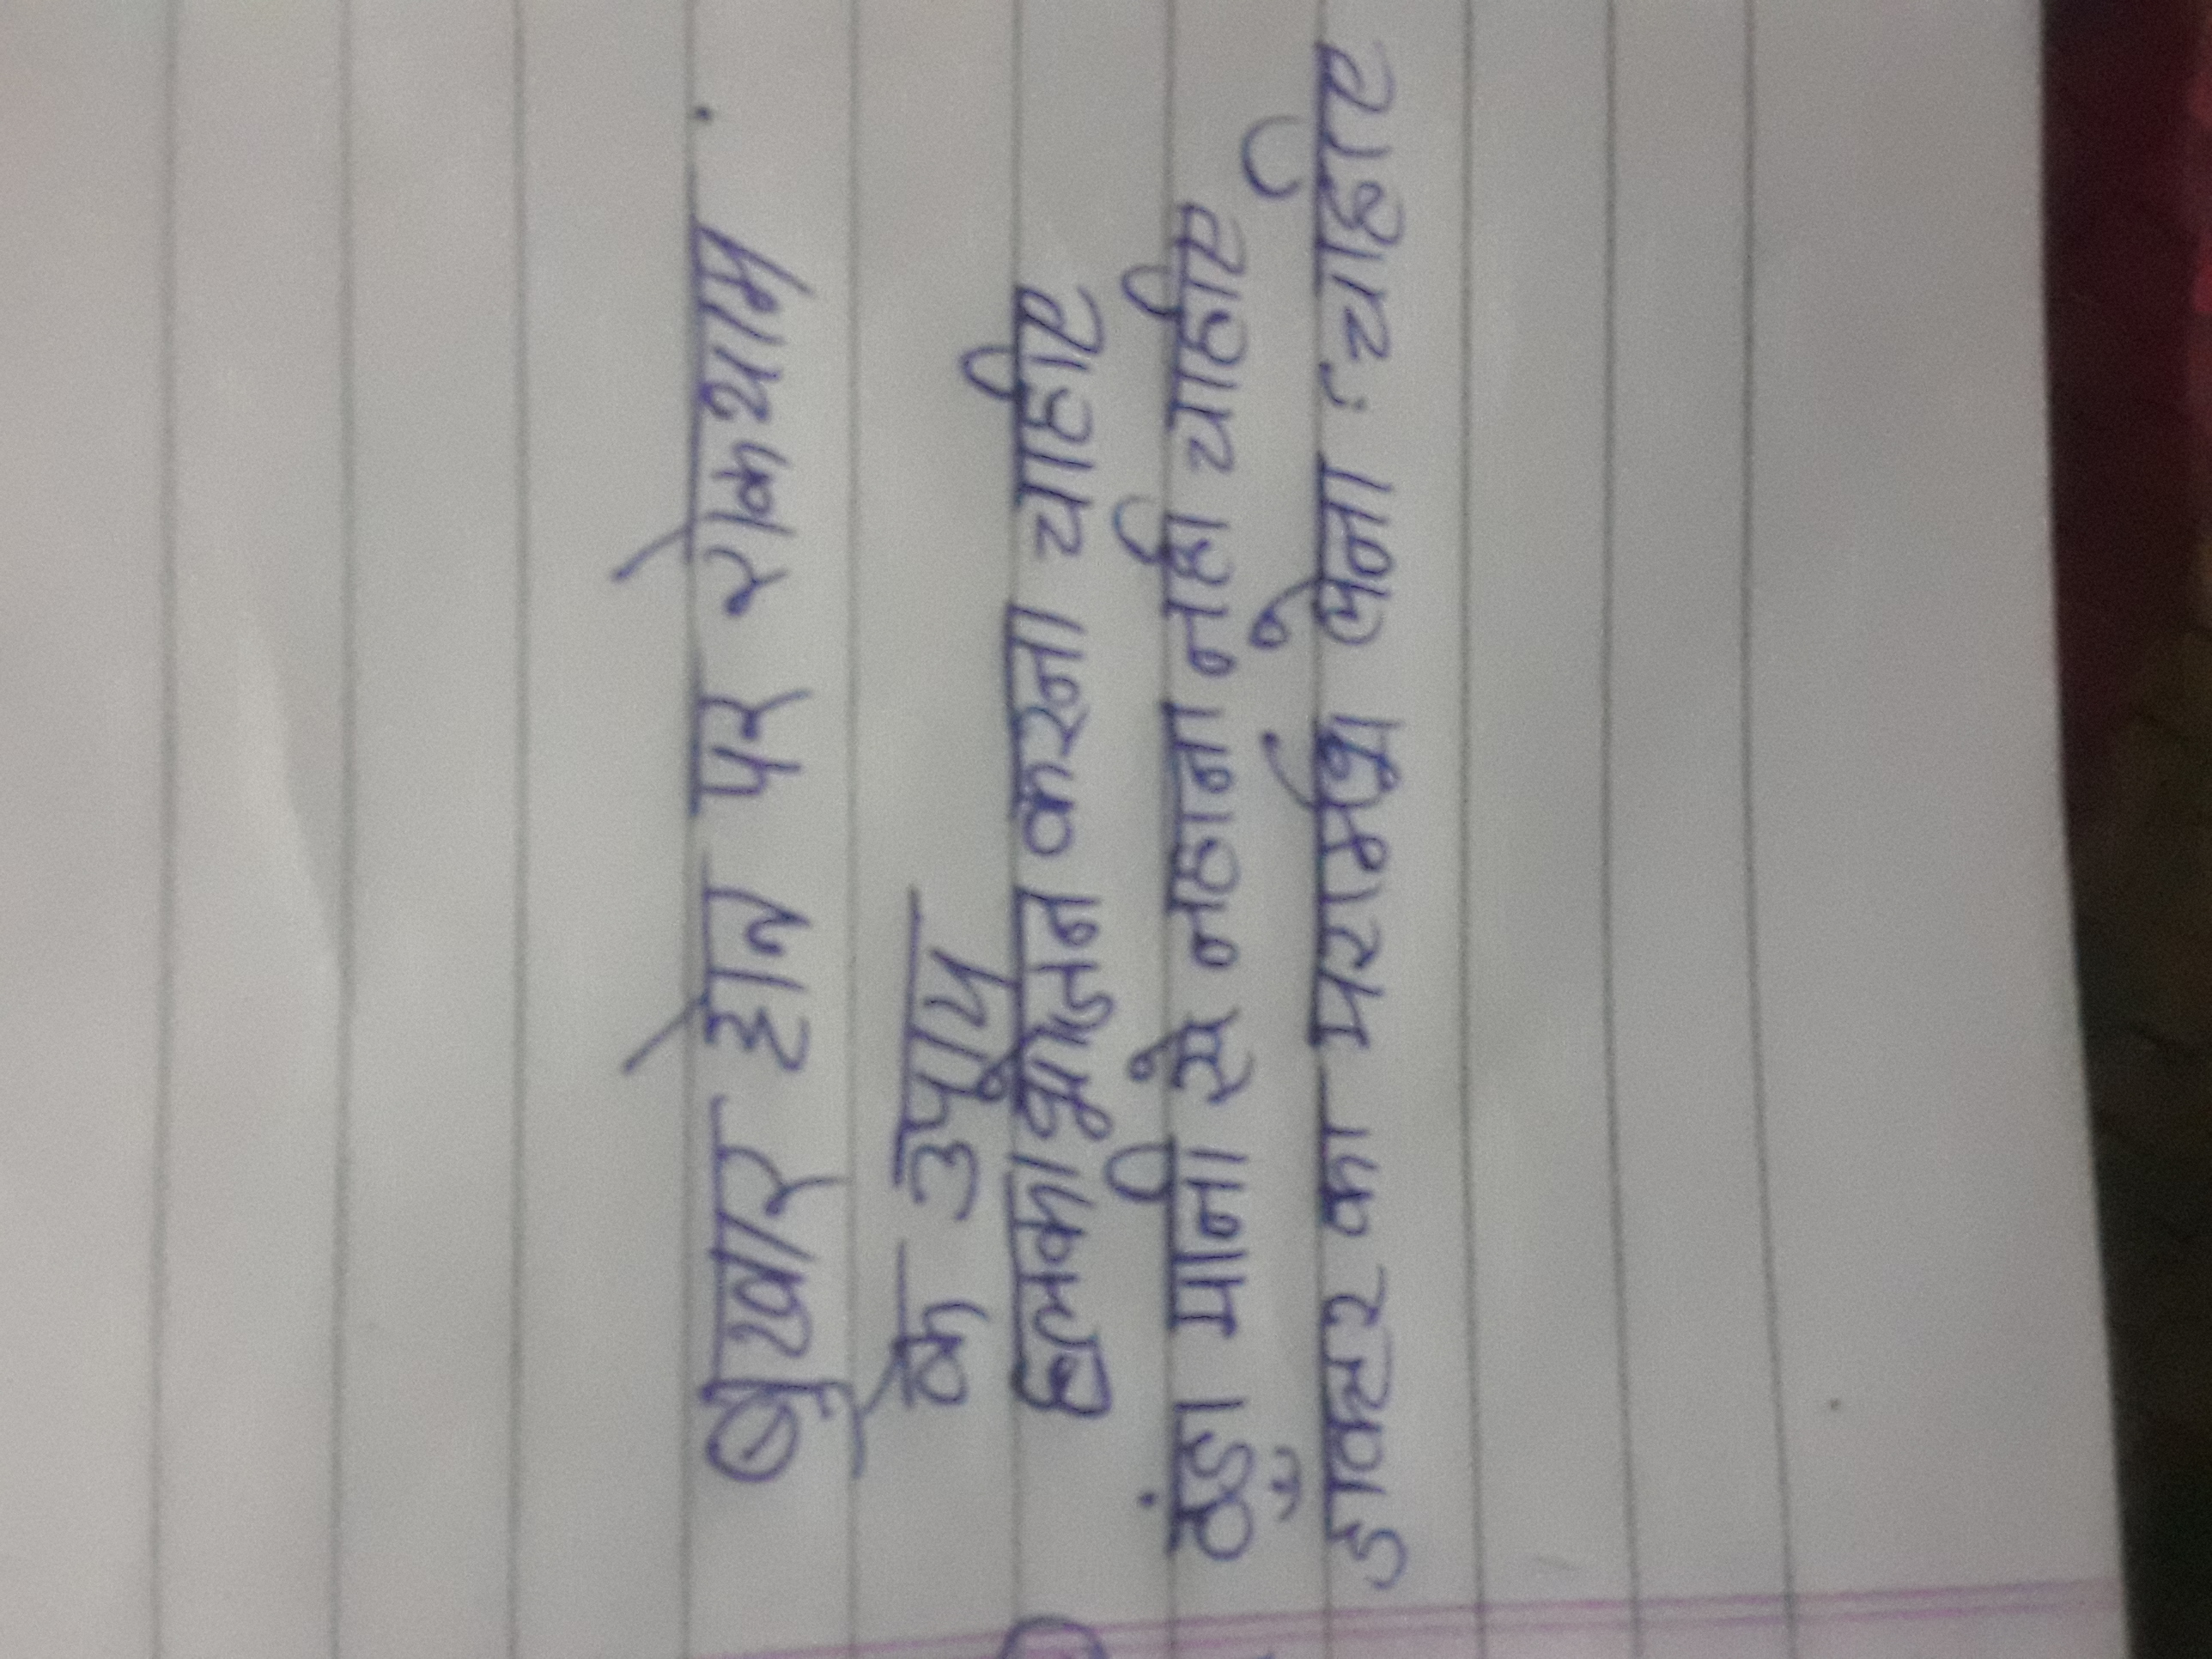 बुखार होने पर रोकथाम
के उपाय
हल्का भोजन करना चाहिए
ठंडा पानी से नहाना नही चाहिए
डॉक्टर का परामर्श लेना चाहिए